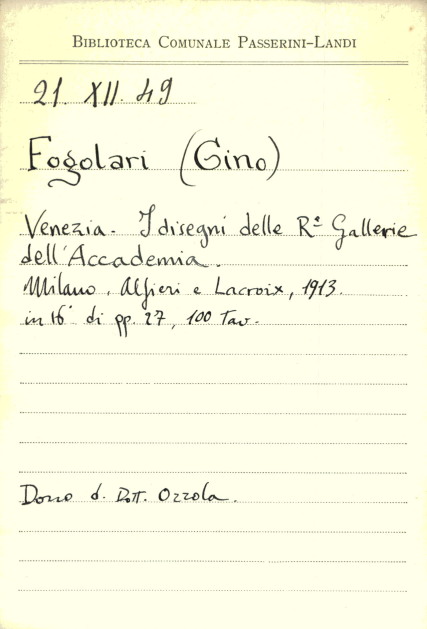 BIBLIOTECA COMUNALE PASSERINI-LANDI
21. XII. 49
Fogolari (Gino)
Venezia. I disegni delle R.e Gallerie
dell'Accademia.
Milano. Alfieri e Lacroix, 1913.
in 16° di pp. 27, 100 Tav.
Dono d. Dott. Ozzola.